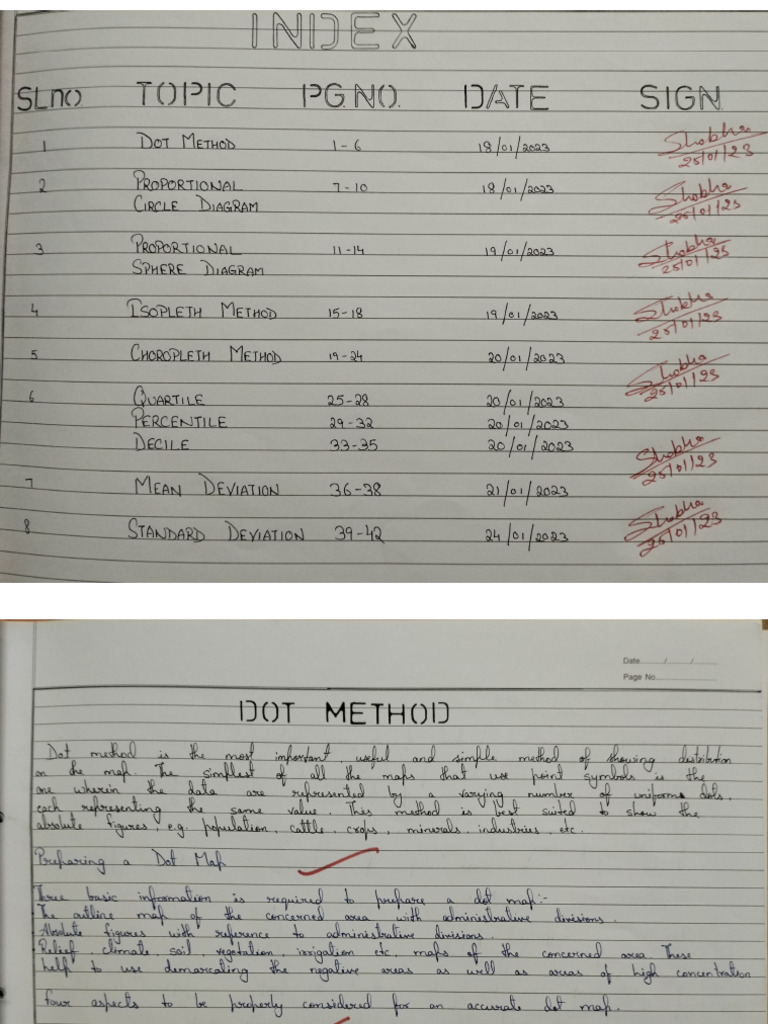 INDEX
SL.NO TOPIC PG.NO. DATE SIGN
1 DOT METHOD 1-6 18/01/2023 Shobha 25/01/23
2 PROPORTIONAL CIRCLE DIAGRAM 7-10 18/01/2023 Shobha 25/01/23
3 PROPORTIONAL SPHERE DIAGRAM 11-14 19/01/2023 Shobha 25/01/23
4 ISOPLETH METHOD 15-18 19/01/2023 Shobha 25/01/23
5 CHOROPLETH METHOD 19-24 20/01/2023 Shobha 25/01/23
6 QUARTILE 25-28 20/01/2023
PERCENTILE 29-32 20/01/2023
DECILE 33-35 20/01/2023 Shobha 25/01/23
7 MEAN DEVIATION 36-38 21/01/2023
8 STANDARD DEVIATION 39-42 24/01/2023 Shobha 25/01/23
Date / /
Page No.
DOT METHOD
Dot method is the most important, useful and simple method of showing distribution
on the map. The simplest of all the maps that use point symbols is the
one wherein the data are represented by a varying number of uniforms dots,
each representing the same value. This method is best suited to show the
absolute figures, e.g. population, cattle, crops, minerals, industries, etc.
Preparing a Dot Map
Three basic information is required to prepare a dot map:-
The outline map of the concerned area with administrative divisions.
Absolute figures with reference to administrative divisions.
Relief, climate, soil, vegetation, irrigation etc. maps of the concerned area. These
help to use demarcating the negative areas as well as areas of high concentration
Four aspects to be properly considered for an accurate dot map.